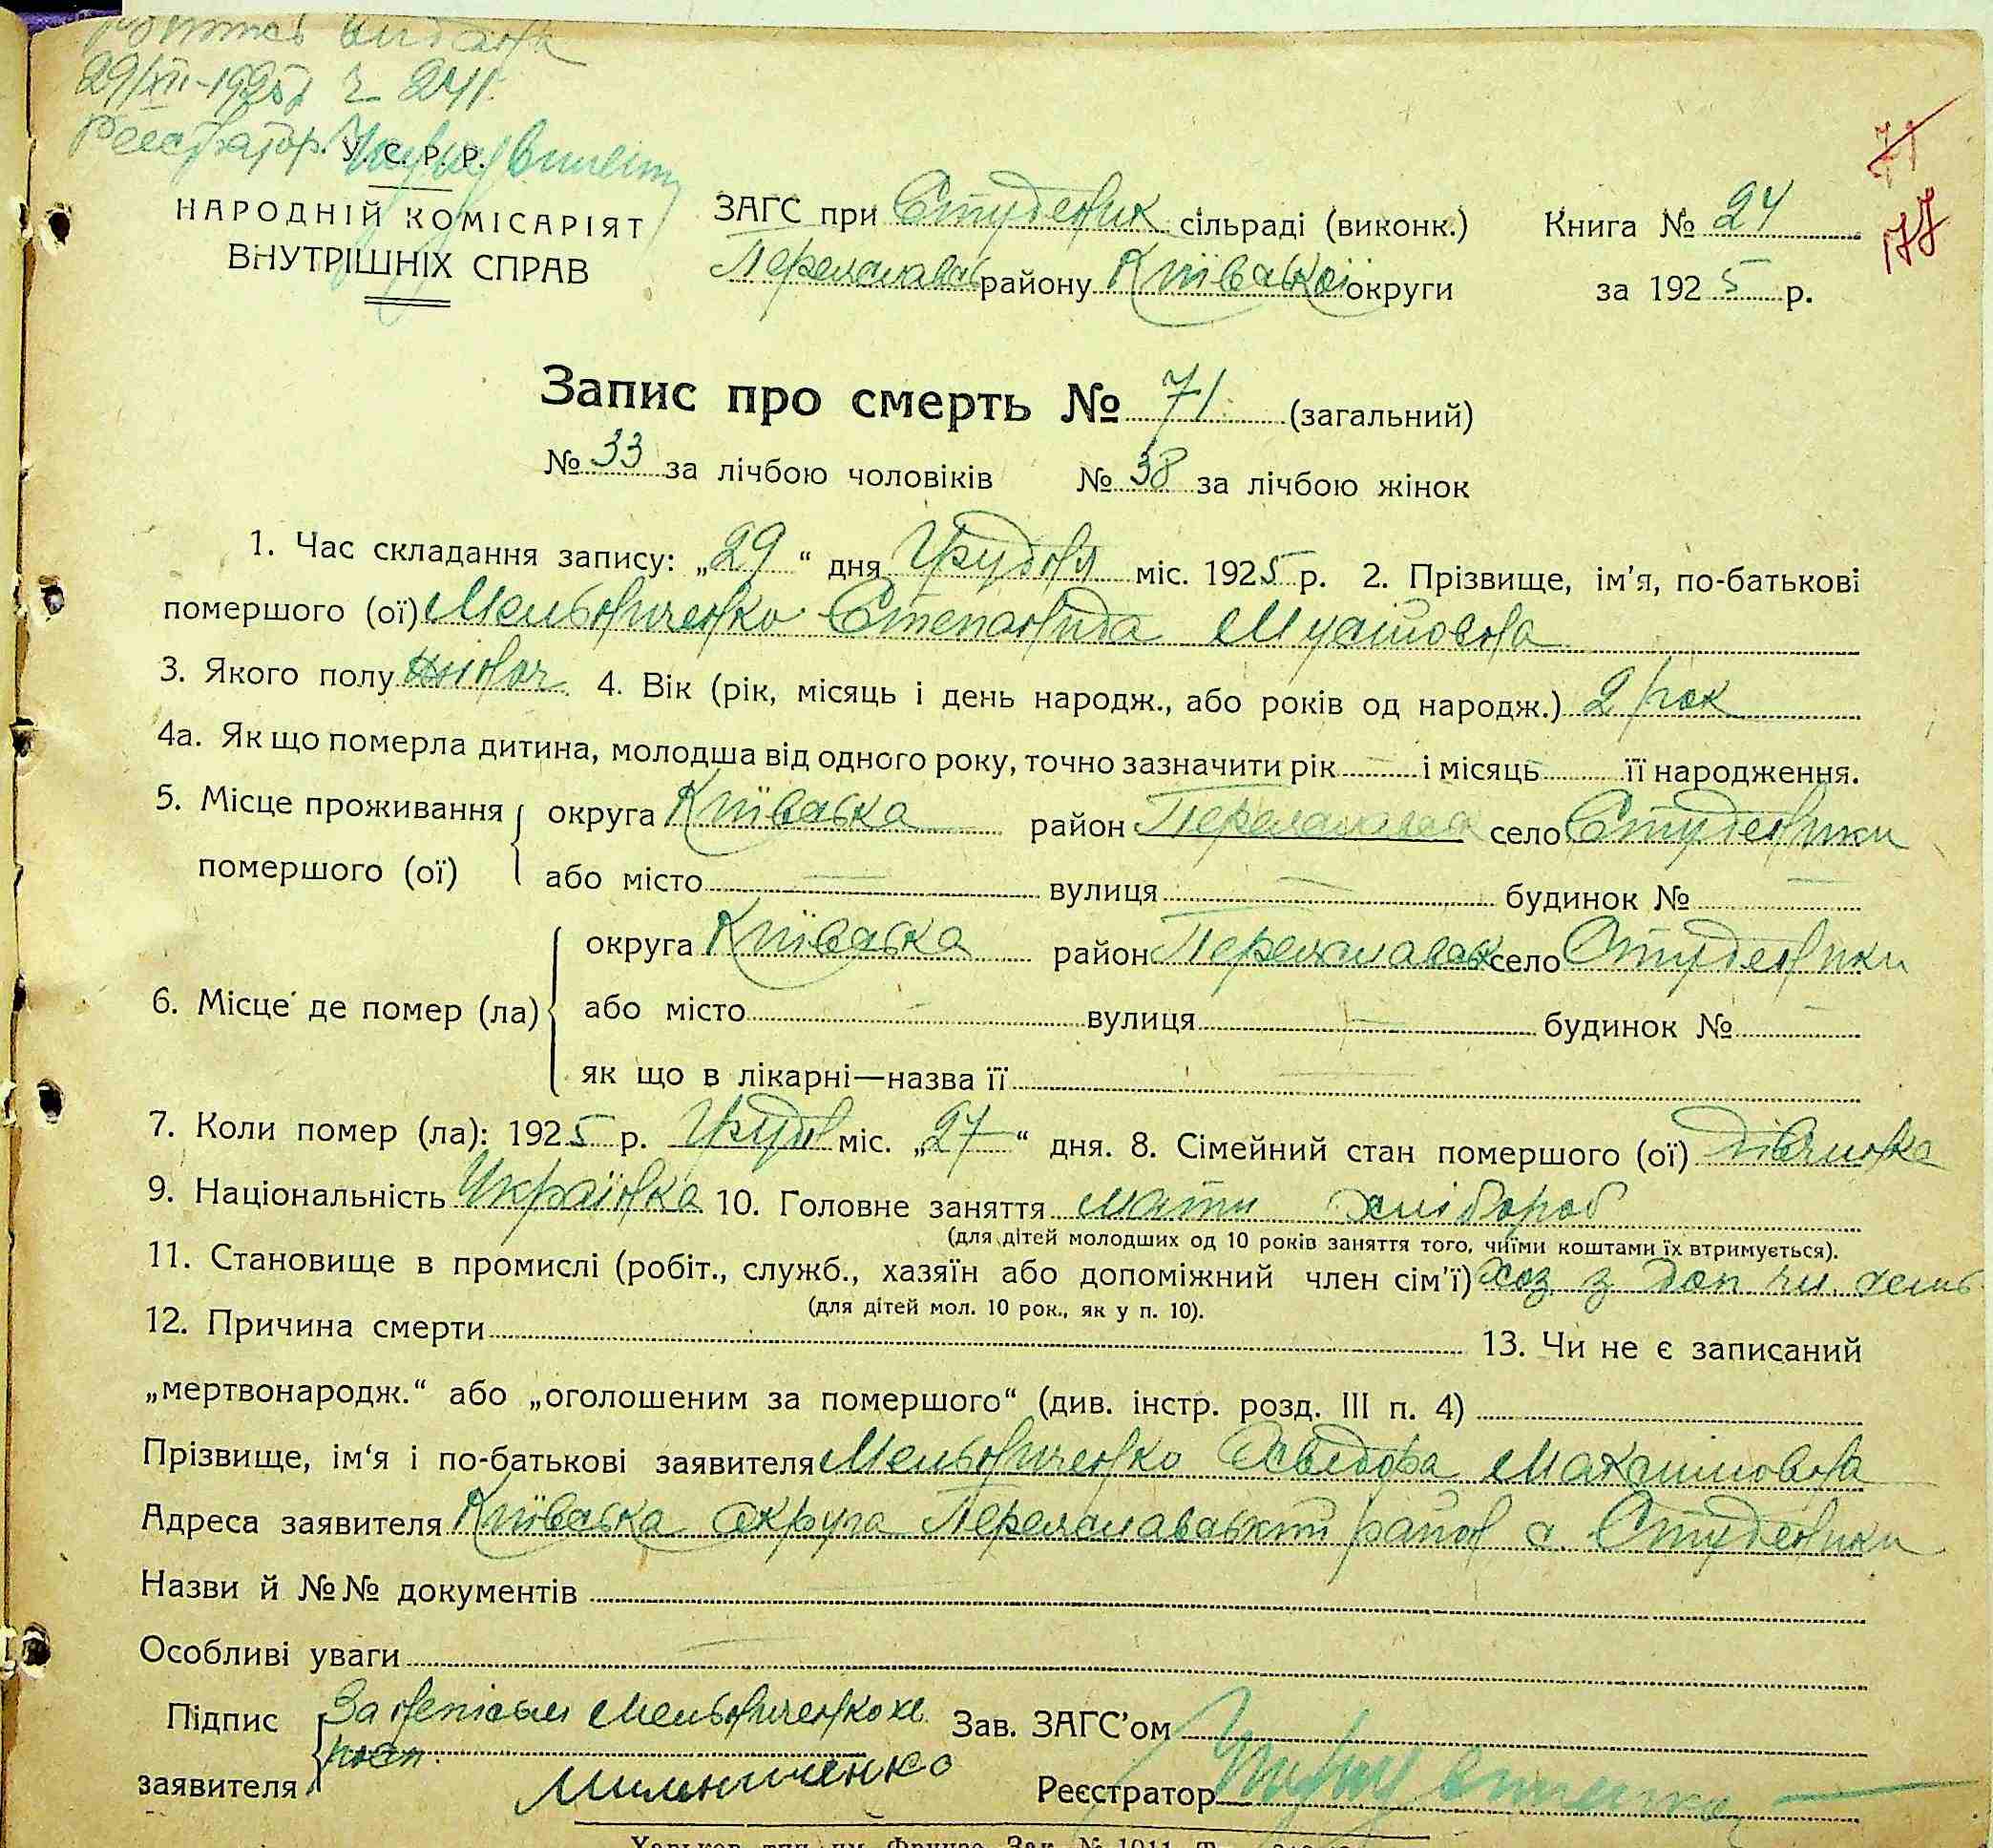 Витяг видана
29/XII-1925 р. ч. 271.
Реєстратор
У. С. Р. Р.
НАРОДНІЙ КОМІСАРІЯТ
ВНУТРІШНІХ СПРАВ
ЗАГС при Студеник сільраді (виконк.)
Переяславськ району Київської округи
Книга № 24
за 1925 р.
71
177
Запис про смерть № 71. (загальний)
№ 33 за лічбою чоловіків № 38 за лічбою жінок
1. Час складання запису: „29“ дня Грудня міс. 1925 р. 2. Прізвище, ім’я, по-батькові
помершого (ої) Мельниченко Степанида Мусіювна
3. Якого полу жіноч. 4. Вік (рік, місяць і день народж., або років од народж.) 2 рок
4а. Як що померла дитина, молодша від одного року, точно зазначити рік — і місяць її народження.
5. Місце проживання помершого (ої) округа Київська район Переяславськ село Студеники
або місто — вулиця — будинок № —
6. Місце де помер (ла) округа Київська район Переяславськ село Студеники
або місто — вулиця — будинок № —
як що в лікарні—назва її —
7. Коли помер (ла): 1925 р. Грудн міс. „27“ дня. 8. Сімейний стан помершого (ої) дівчинка
9. Національність Українка 10. Головне заняття мати хлібороб
(для дітей молодших од 10 років заняття того, чиїми коштами їх втримується).
11. Становище в промислі (робіт., служб., хазяїн або допоміжний член сім’ї) хоз з доп чл. семь
(для дітей мол. 10 рок., як у п. 10).
12. Причина смерти 13. Чи не є записаний
„мертвонародж.“ або „оголошеним за помершого“ (див. інстр. розд. III п. 4)
Прізвище, ім‘я і по-батькові заявителя Мельниченко Максимовна
Адреса заявителя Київська округа Переяславський район с. Студеники
Назви й №№ документів
Особливі уваги
Підпис заявителя За непісьм Мельниченко
расп.
Мильниченко
Зав. ЗАГС’ом
Реєстратор